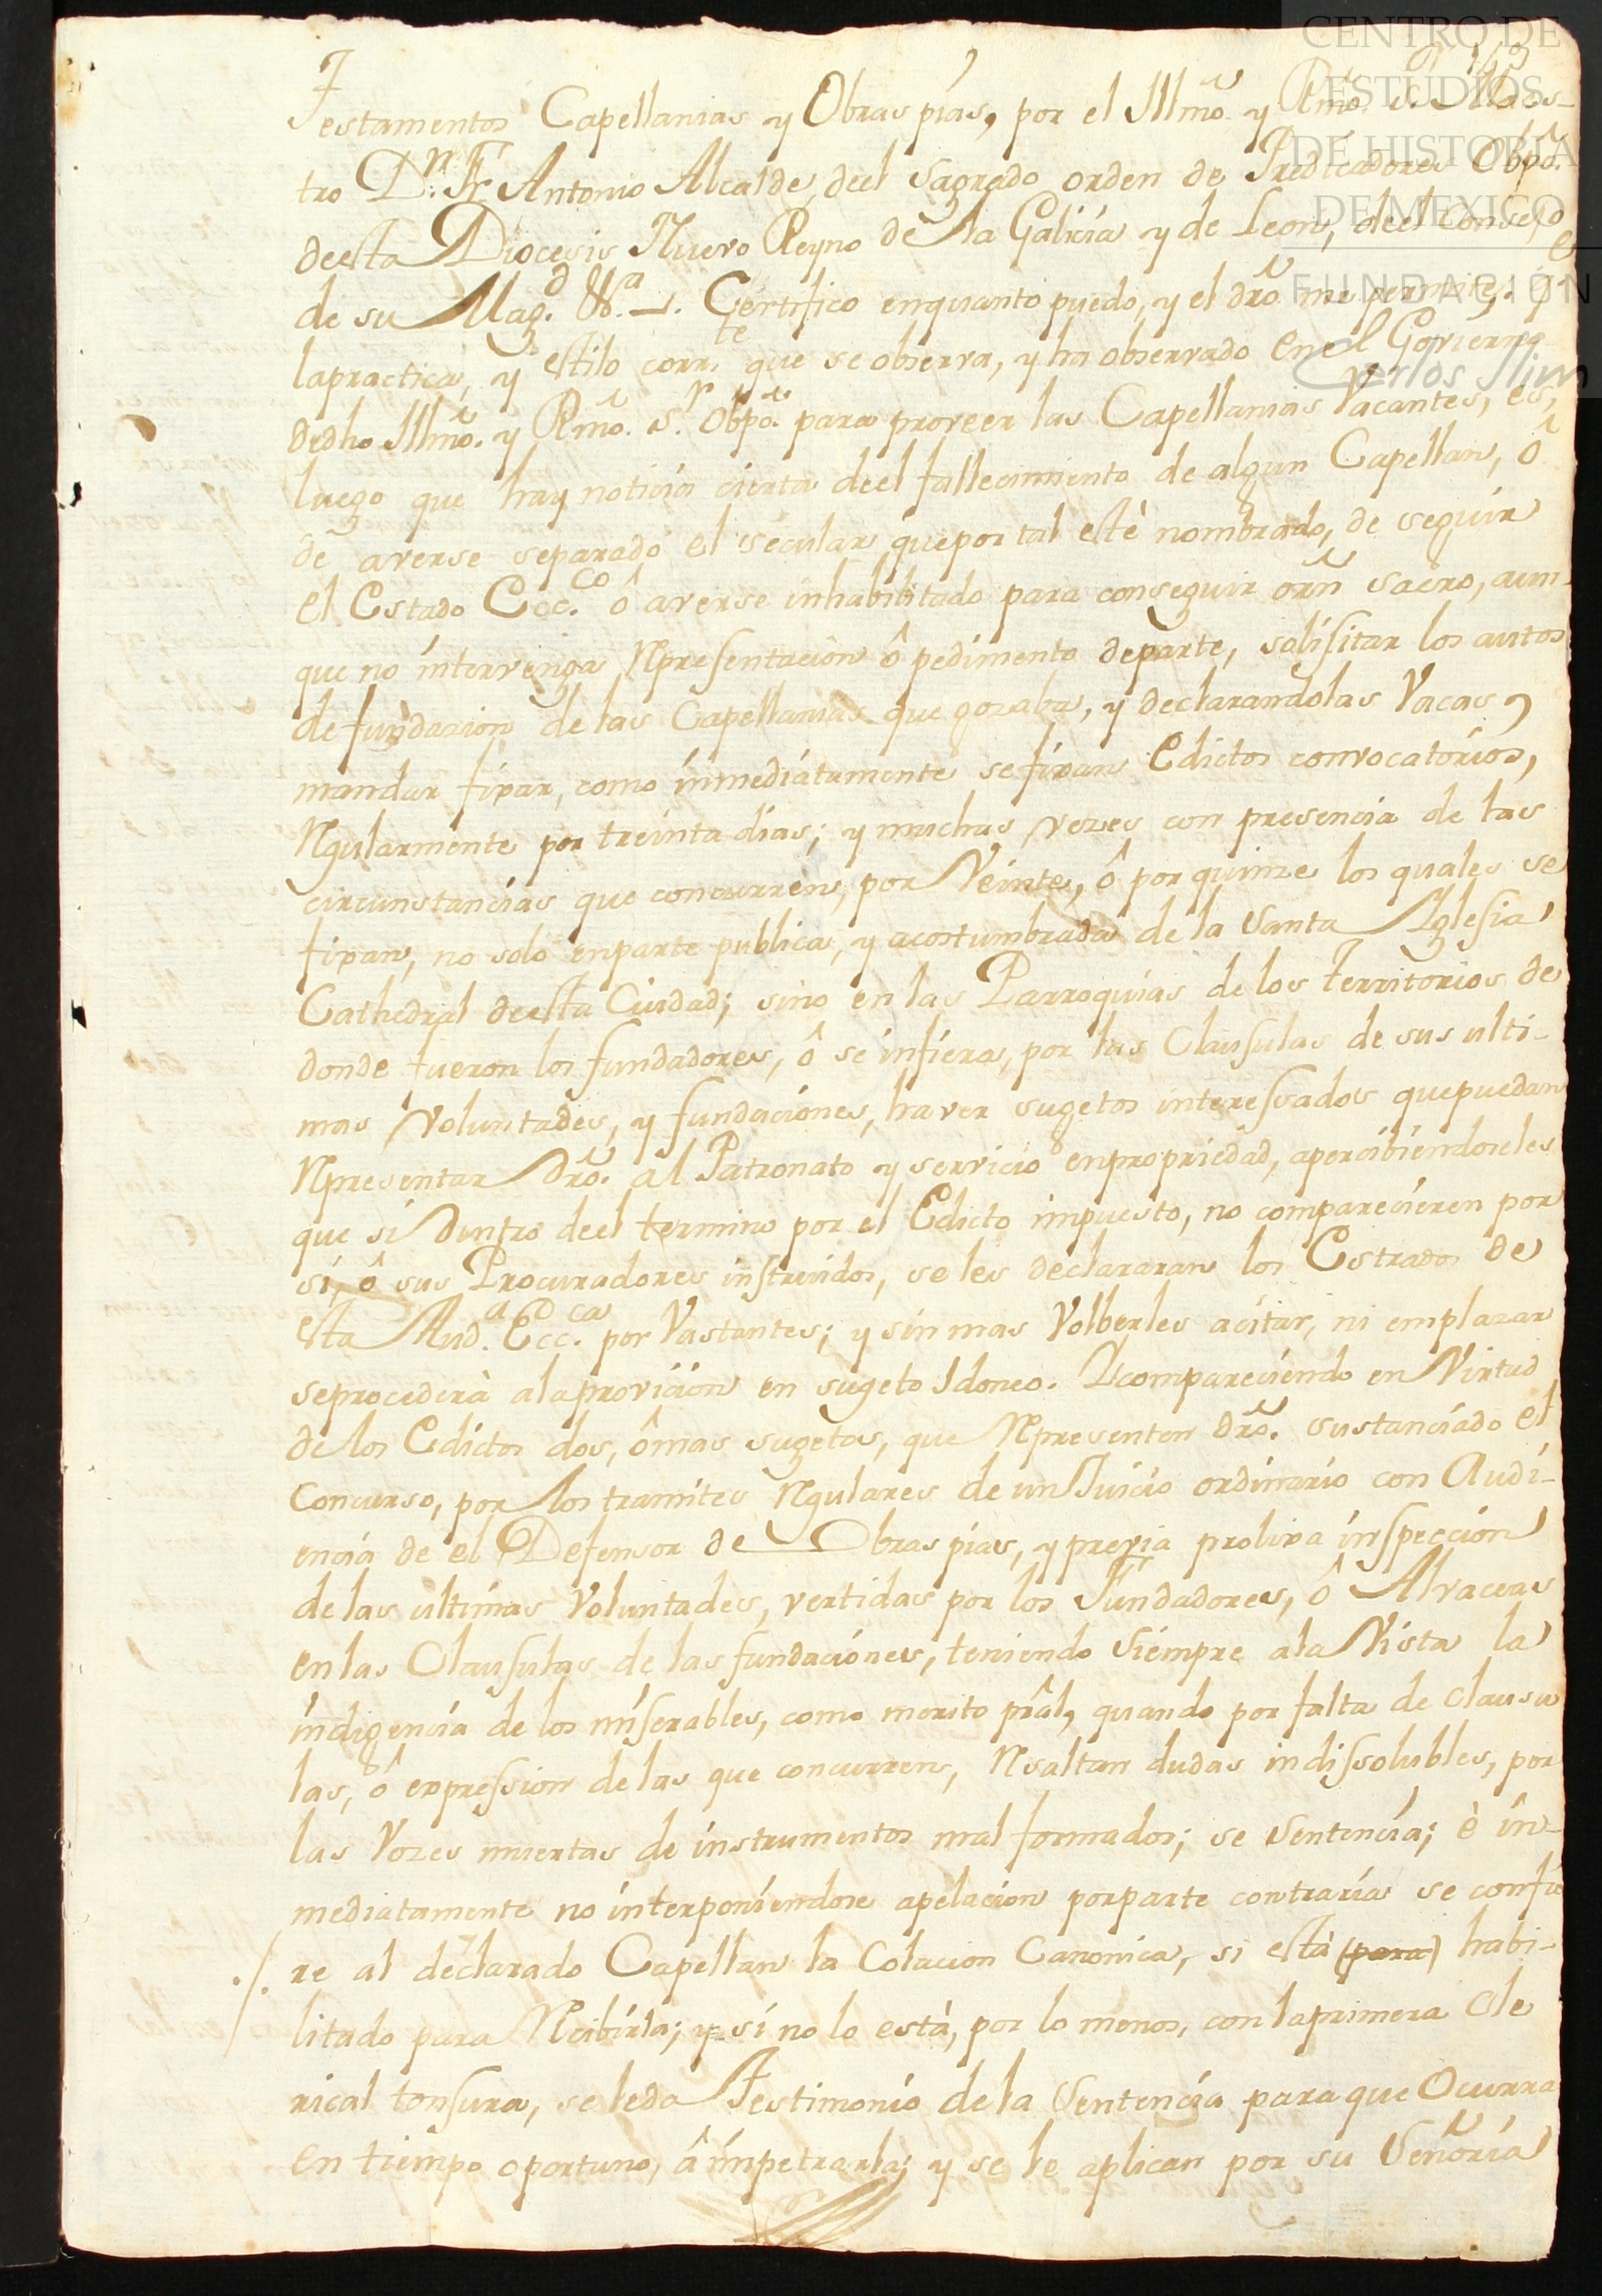 CENTRO DE
ESTUDIOS
DE HISTORIA
DE MEXICO
FUNDACIÓN
Carlos Slim
Testamentos Capellanias y Obras pías, por el Illmõ. y Rmõ. S.r Maes-
tro D.n Fr. Antonio Alcalde, deel Sagrado orden de Predicadores Obpõ.
deesta Diocesis Nuevo Reyno de la Galicia y de Leon, deel Consejo
de su Mag.d &.a Certifico enquanto puedo, y el drõ. me permite, q.e
lapractica, y estilo corr.te que se observa, y ha observado enel Govierno
dedho Illmõ. y Rmõ. S.r Obpõ. para proveer las Capellanias Vacantes, es;
luego que hay noticia cierta deel fallecimiento de algun Capellan, ô
de averse separado el secular quepor tal estè nombrado, de seguir
el Estado Ecc.co ô averse inhabilitado para conseguir orñ sacro, aun-
que no intervenga Representacion ô pedimento departe, solisitar los autos
de fundazion de las Capellanias que gozaba, y declarandolas Vacas,
mandar fixar, como inmediatamente se fixan Edictos convocatorios,
Regularmente por treinta dias; y muchas vezes con presencia de las
circunstancias que concurren, por Veinte, ô por quinze los quales se
fixan, no solo enparte publica, y acostumbrada de la Santa Yglesia
Cathedral deesta Ciudad; sino en las Parroquias de los territorios de
donde fueron los fundadores, ô se infiera, por las Clausulas de sus ulti-
mas Voluntades, y fundaciones, haver sugetos interessados quepuedan
Representar drõ. al Patronato y servicio enpropriedad, apercibiendoseles
que si dentro deel termino por el Edicto impuesto, no comparecieren por
sí, ô sus Procuradores instruidos, se les declararan los Estrados de
esta Aud.a Ecc.ca por Vastantes; y sin mas Volberles acitar, ni emplazar
seprocederà alaprovicion en sugeto Idoneo. Y compareciendo en Virtud
de los Edictos dos, ômas sugetos, que Representen drõ. sustanciado el
Concurso, por los tramites Regulares de un Juicio ordinario con Audi-
encia de el Defensor de Obras pias, y previa prolixa inspeccion
de las ultimas Voluntades, vertidas por los Fundadores, ô Alvaceas
en las Clausulas de las fundaciones, teniendo Siempre ala Vista la
indigencia de los miserables, como merito prãl, quando por falta de clausu
las, ô expression de las que concurren, Resaltan dudas indissolubles, por
las Vozes muertas de instrumentos mal formados; se Sentencia; è in-
mediatamente no interponiendose apelacion porparte contraria se confie
./. re al declarado Capellan la Colacion Canonica, si està (para) habi-
litado para Recibirla; y si no lo està, por lo menos, con laprimera Cle
rical tonsura, se leda Testimonio de la Sentencia paraque Ocurra
en tiempo oportuno, â impetrarla; y se le aplican por su Señoria